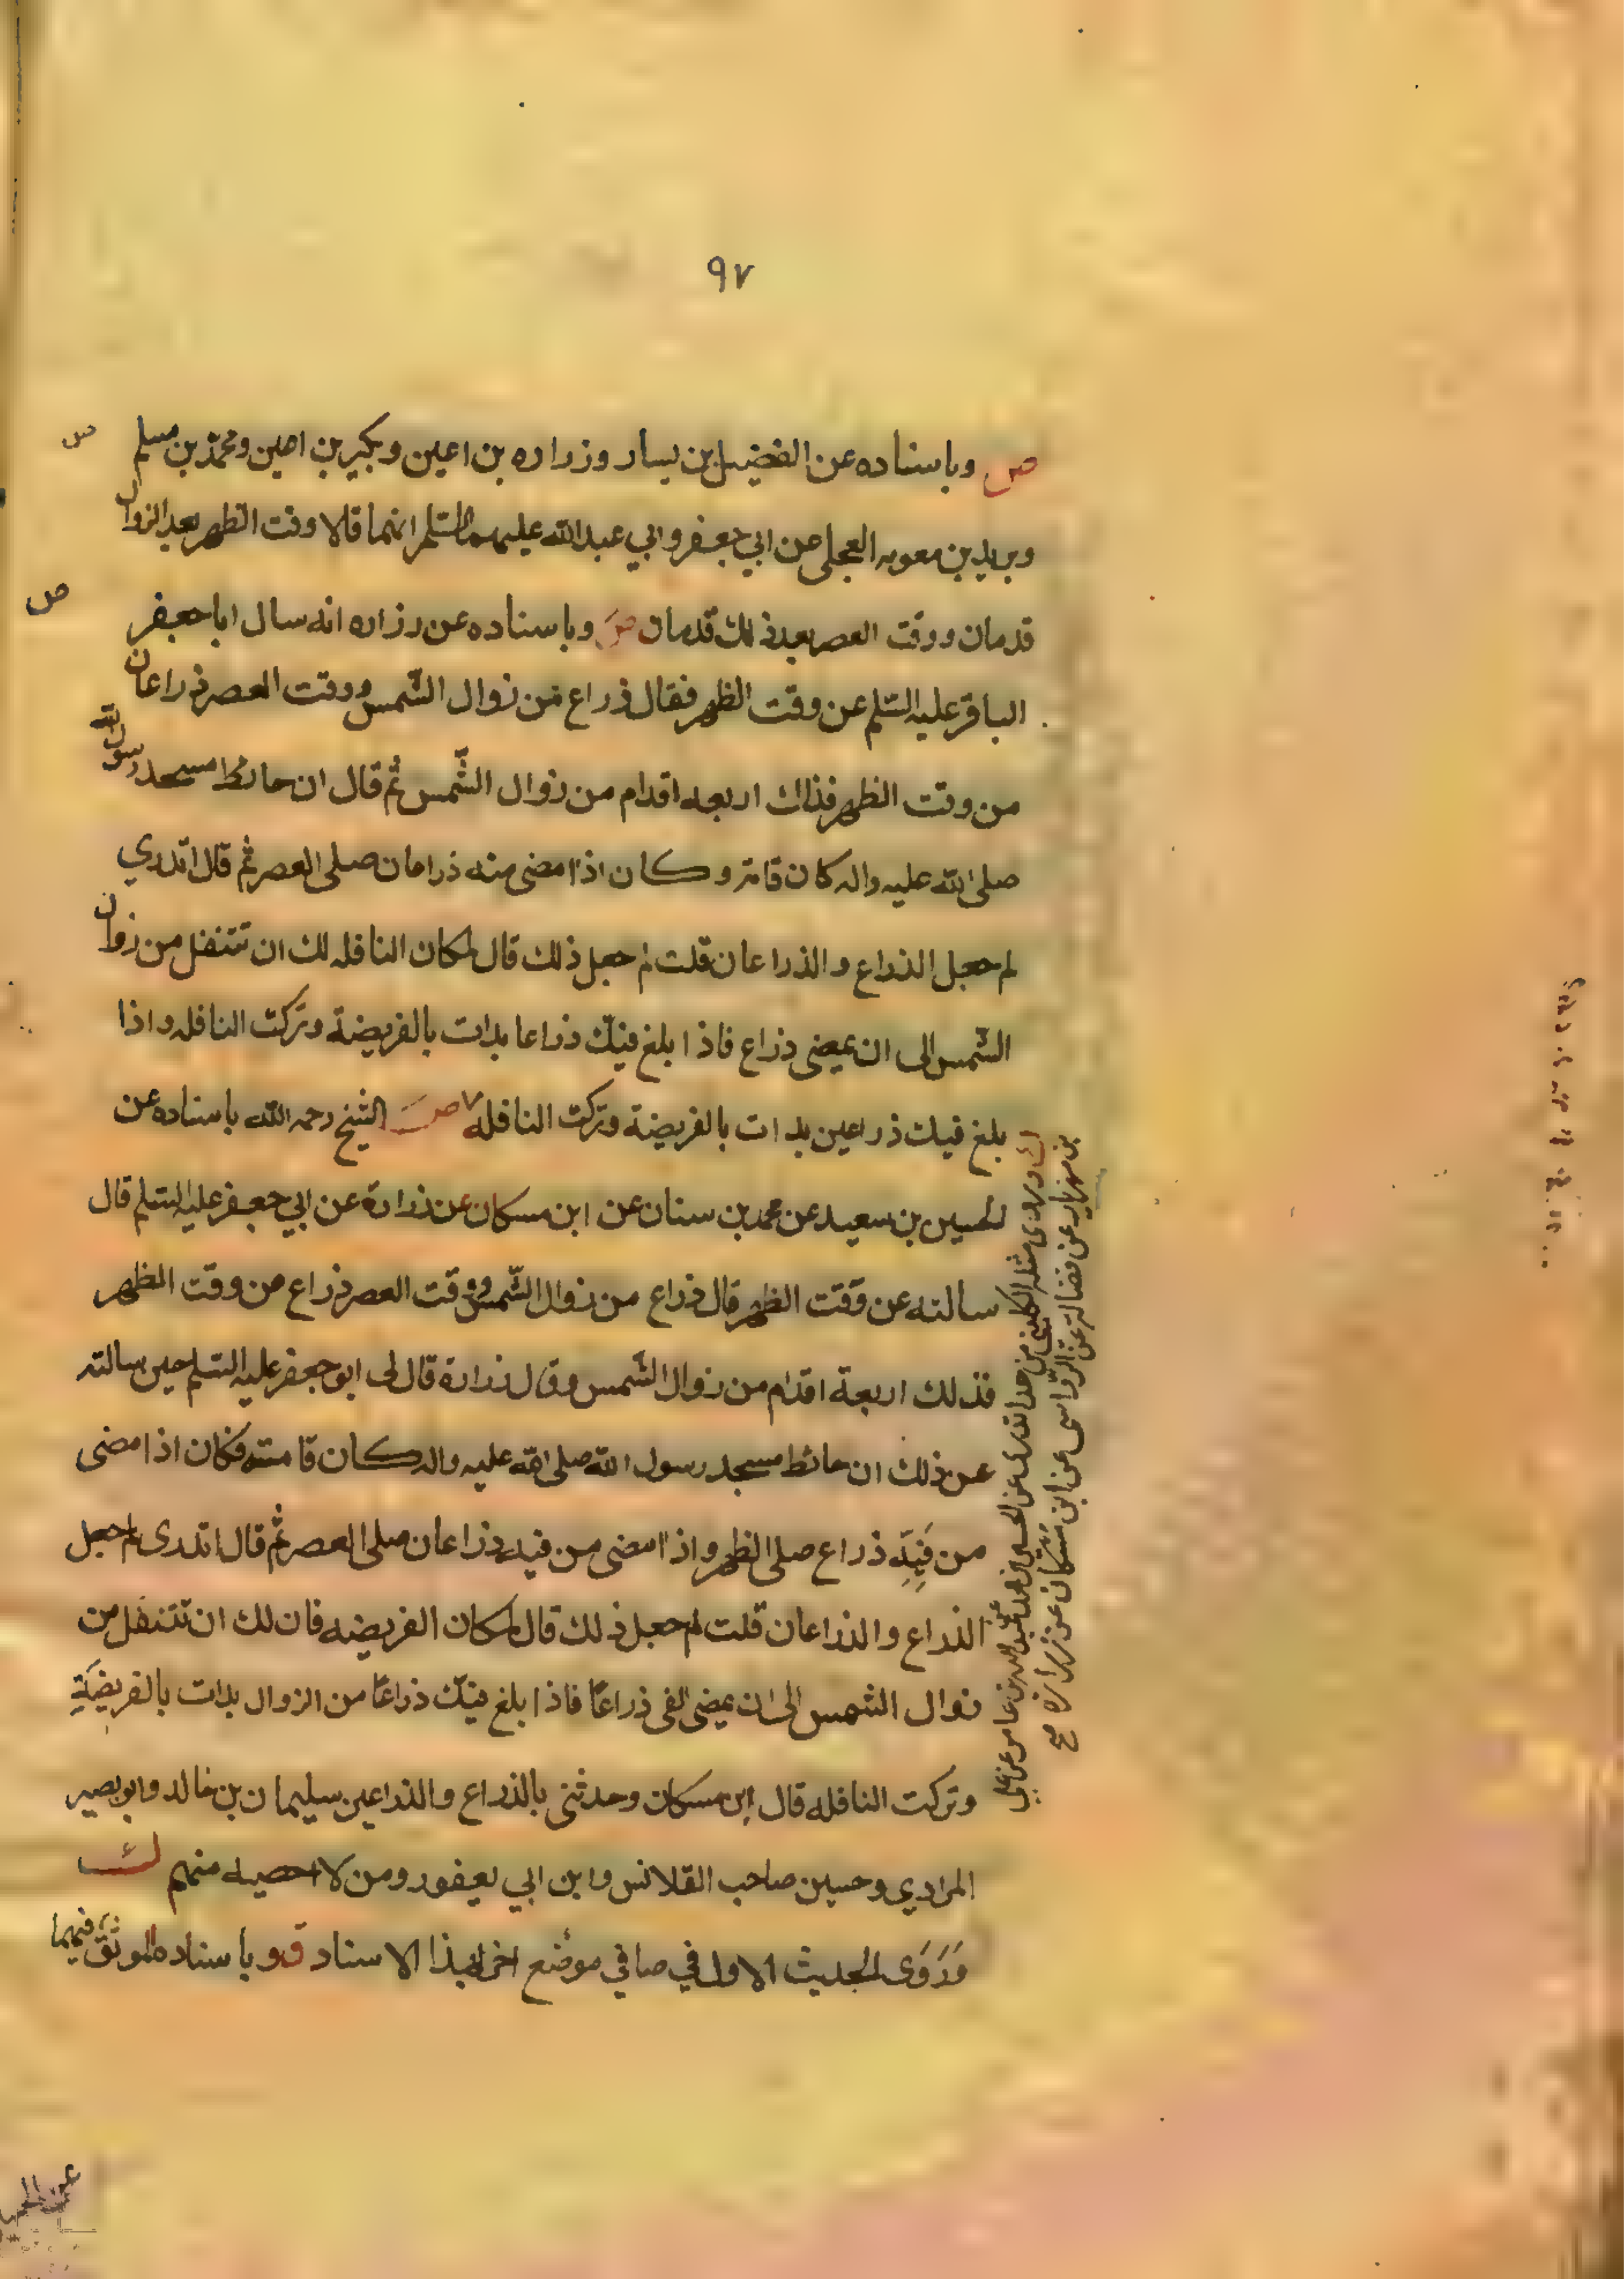 ٩٧
ص وباسناده عن الفضيل بن يسار وزراره بن اعين وبكير بن اعين ومحمد بن مسلم ص
وبريد بن معويه العجلي عن ابي جعفر وابي عبدالله عليهما السلم انهما قالا وقت الظهر بعد الزوال
قدمان ووقت العصر بعد ذلك قدمان ص وباسناده عن زراره انه سال ابا جعفر ص
الباقر عليه السلم عن وقت الظهر فقال ذراع من زوال الشمس ووقت العصر ذراعان
من وقت الظهر فذاك اربعه اقدام من زوال الشّمس ثم قال ان حائط مسجد رسول الله
صلى الله عليه واله كان قامة وكان اذا مضى منه ذراعان صلى العصر ثم قال اتدري
لم جعل الذراع والذراعان قلت لم جعل ذلك قال لمكان النافله لك ان تتنفل من زوال
الشمس الى ان يمضى ذراع فاذا بلغ فيئك ذراعا بدات بالفريضة وتركت النافله واذا
بلغ فيئك ذراعين بدات بالفريضة وتركت النافله ص الشيخ رحمه الله باسناده عن
الحسين بن سعيد عن محمد بن سنان عن ابن مسكان عن زرارة عن ابي جعفر عليه السلم قال
سالته عن وقت الظهر قال ذراع من زوال الشّمس ووقت العصر ذراع من وقت الظهر
فذلك اربعة اقدام من زوال الشمس وقال زرارة قال لى ابو جعفر عليه السلم حين سالته
عن ذلك ان حائط مسجد رسول الله صلى الله عليه واله كان قامته فكان اذا مضى
من فيه ذراع صلى الظهر واذا مضى من فيه ذراعان صلى العصر ثم قال اتدرى لم جعل
الذراع والذراعان قلت لم جعل ذلك قال لمكان الفريضه فان لك ان تتنفل من
زوال الشمس الى ان يمضى الفى ذراعًا فاذا بلغ فيئك ذراعًا من الزوال بدات بالفريضَةِ
وتركت النافله قال ابن مسكان وحدثنى بالذراع والذراعين سليمان بن خالد وابو بصير
المرادي وحسين صاحب القلانس وابن ابي يعفور ومن لا احصيه منهم
وَرَوَى الحديث الاول في صافي موضع اخر بهذا الاسناد ق وباسناده الموثق فيهما
وروى مثله الكلينى عن الحسين بن محمد عن عبدالله بن عامر عن على
بن مهزيار عن فضالة عن ابن مسكان عن زرارة